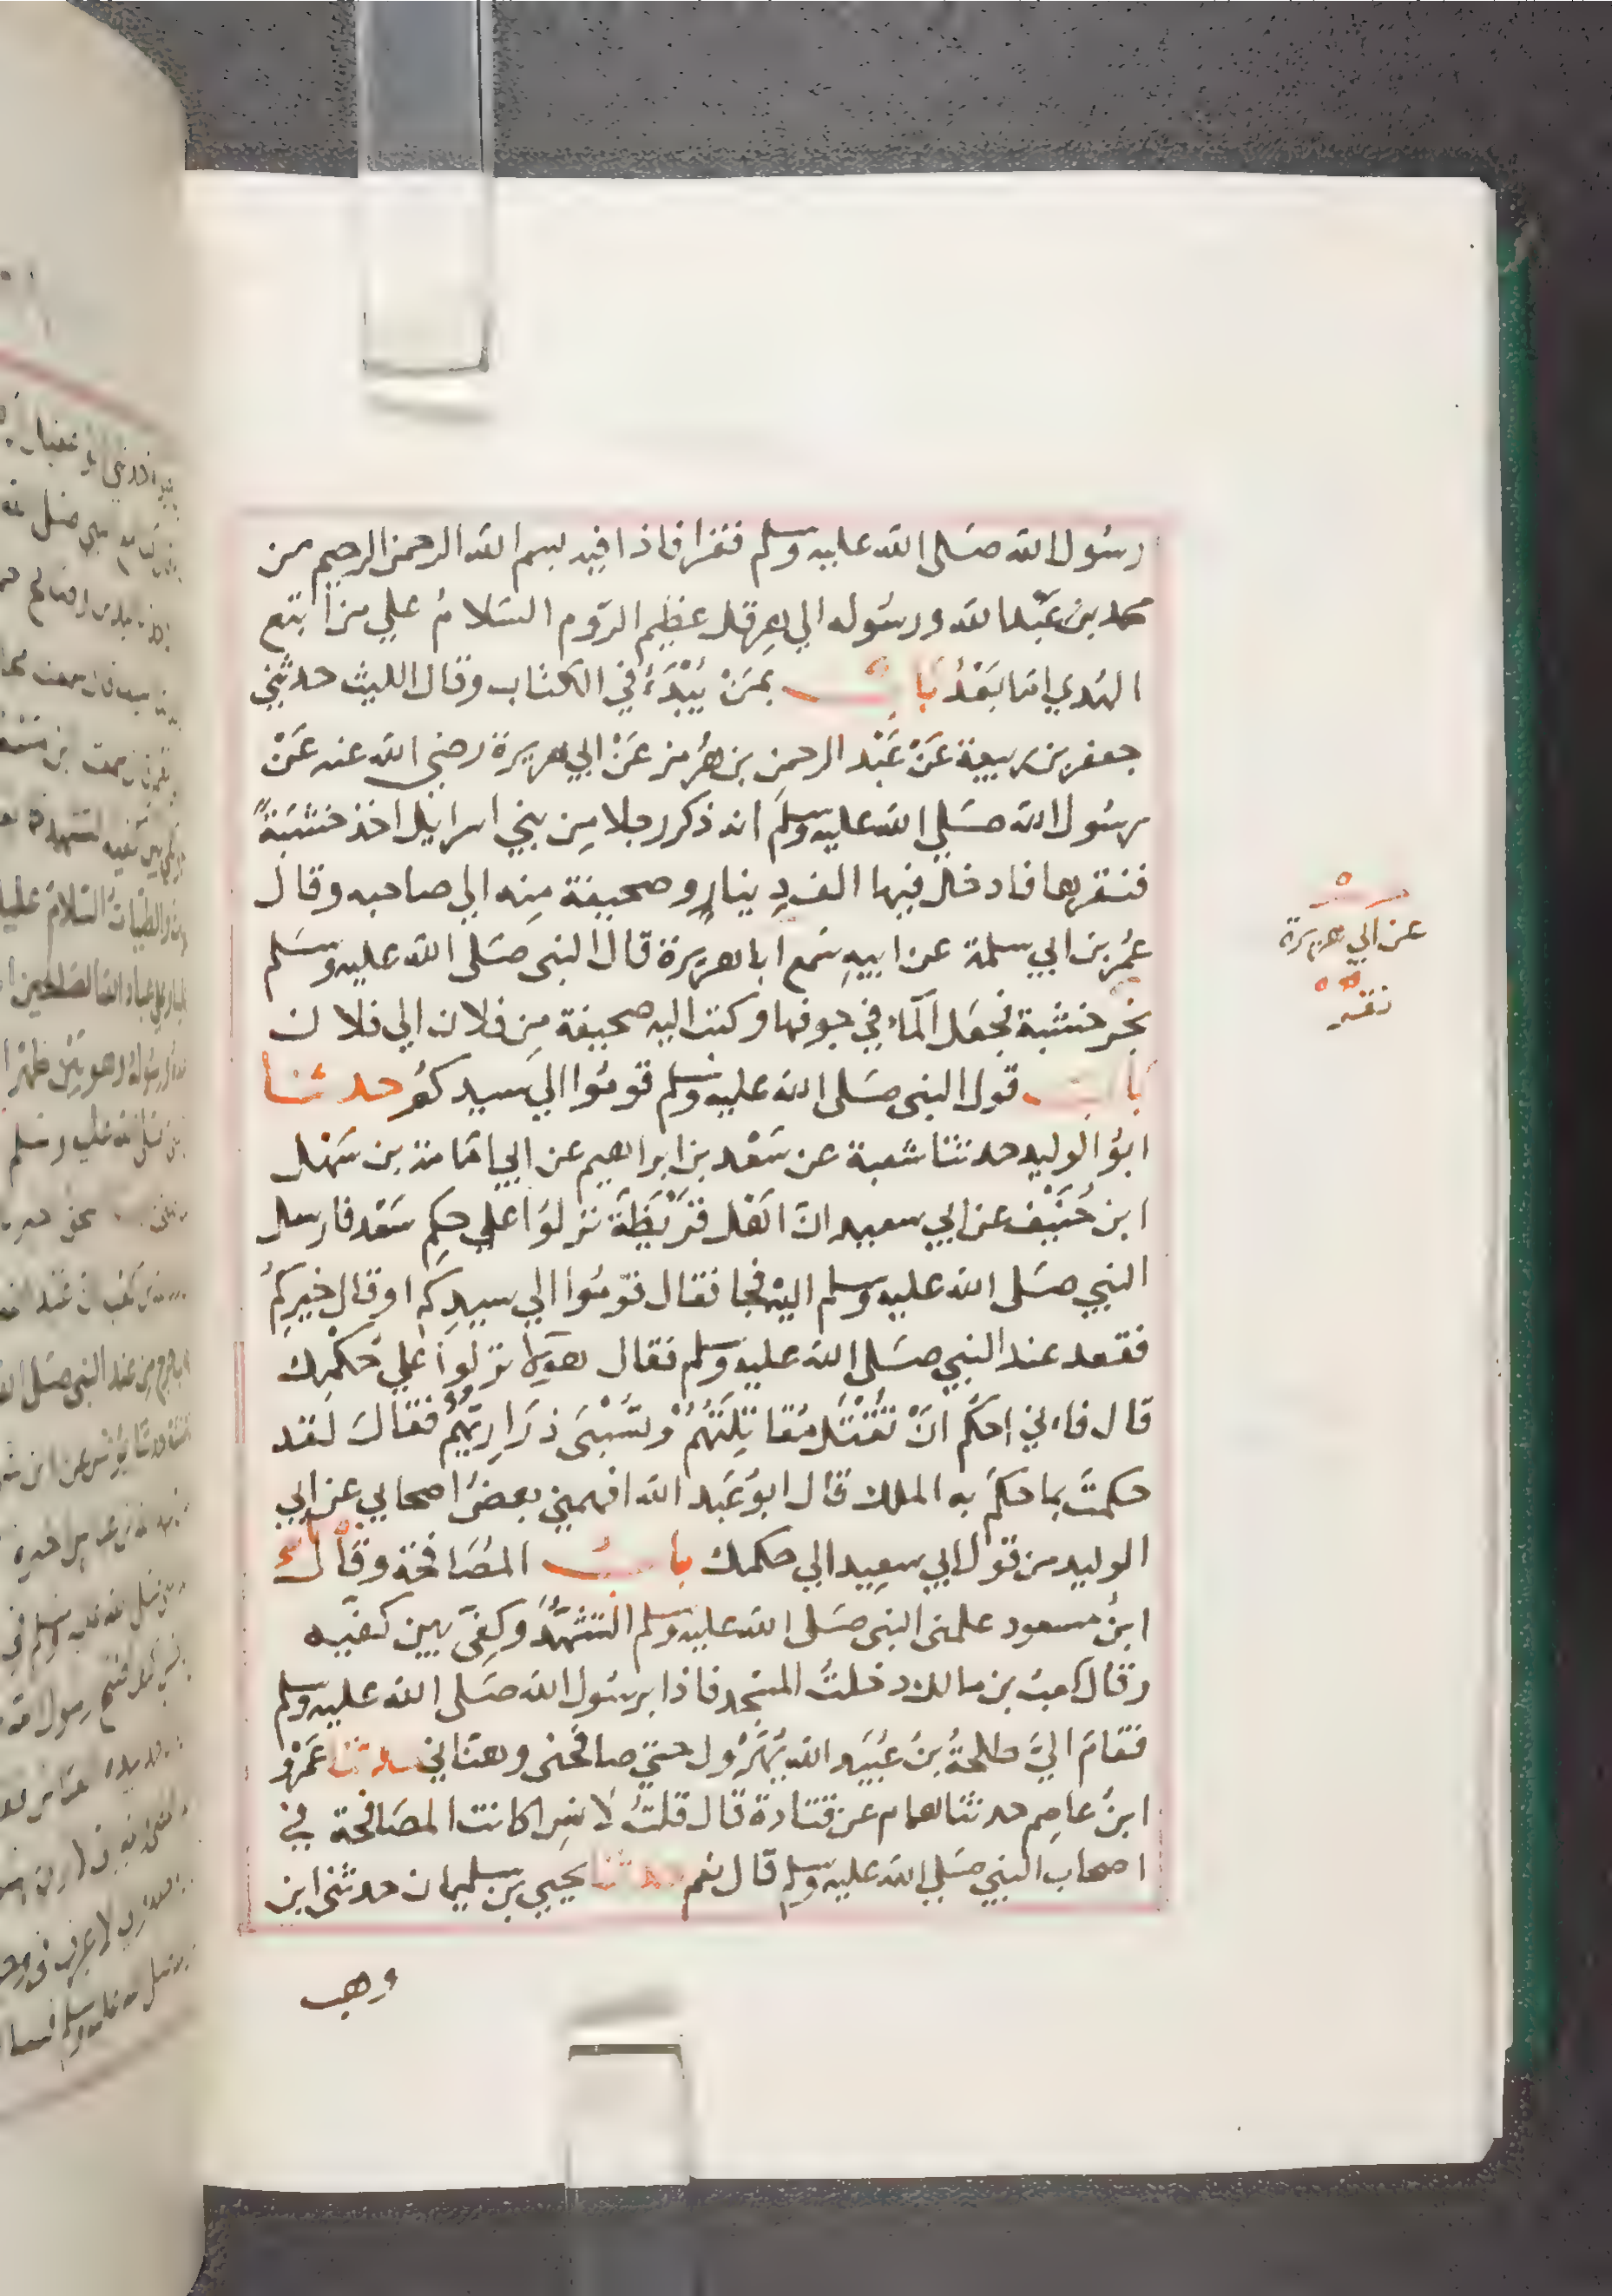 رسُول الله صَلى الله عليه وسلم فقرا فاذا فيه بسم الله الرحمن الرحيم من
محمد بن عَبْد الله ورسُوله الي هِرقل عظيم الرّوم السَلامُ علي من اتبع
الهدي اما بَعْدُ بَابُ بمَنْ يُبْدَءُ في الكتاب وقال الليث حدثني
جعفر بن ربيعة عَنْ عَبْد الرحمن بن هُرمز عَنْ ابي هريرة رضي الله عنه عَنْ
رسُول الله صَلي الله عليه وسلم انه ذكر رجلا مِن بني اسرايل اخذ خشبَةً
فنقرها فادخل فيها الف دِينارٍ وصحيفة مِنه الي صاحبه وقال
عُمر بن ابي سلمة عن ابيهِ سَمع ابا هريرة قال النبى صَلى الله عليه وسَلم
نجر خشبة فجعَل المآء في جوفها وكتب اليه صحيفة مِن فلان الي فلان
بَاب قول النبى صَلى الله عليه وسلم قومُوا الي سيدكمُ حدثنا
ابوُ الوليد حدثنا شعبة عن سَعْد بن ابراهيم عن ابي امَامة بن سَهْل
ابن حُنَيْف عن ابي سعيد انّ اهْل قرَيْظَةَ نزلوُا علي حكِم سَعْد فارسل
النبي صَلى الله عليه وسلم اليْه فجا فقال قوّمُوا الي سيدِكم او قال خيركمُ
فقعد عند النبي صَلى الله عليه وسلم فقال هؤلآ نزلوا علي حُكْمِك
قال فاءني احكُم انْ تُقْتَل مُقاتِلَتُهُمْ وتُسْبْىَ ذرَارِيّهُمْ فقالَ لَقد
حكمتَ بما حكمَ به الملك قال ابوُ عَبد الله افهمني بعضُ اصحابي عن ابي
الوليد من قول ابي سعِيد الي حكمك بابُ المصَافحة وقال
ابنُ مسعود علمنى النبى صَلى الله عليه وسلم التشَهُّدَ وكفّي بَين كفيّه
وقال كعبُ بن مالك دخلتُ المسْجد فاذا برسُول الله صَلى الله عليه وسلم
فقامَ اليَّ طلحةُ بنُ عُبَيد الله يُهَرْوِل حتي صافحَنى وهنّاني حدثنا عَمْرو
ابنُ عاصِم حدثنا همام عن قتادة قال قلتُ لاَنسِ اكانت المصَافحة في
اصحاب النبي صَلي الله عليه وسلم قال نعم حدثنا يحيي بن سليمان حدثنى ابن
وهب
عن ابي هريرة
نقر